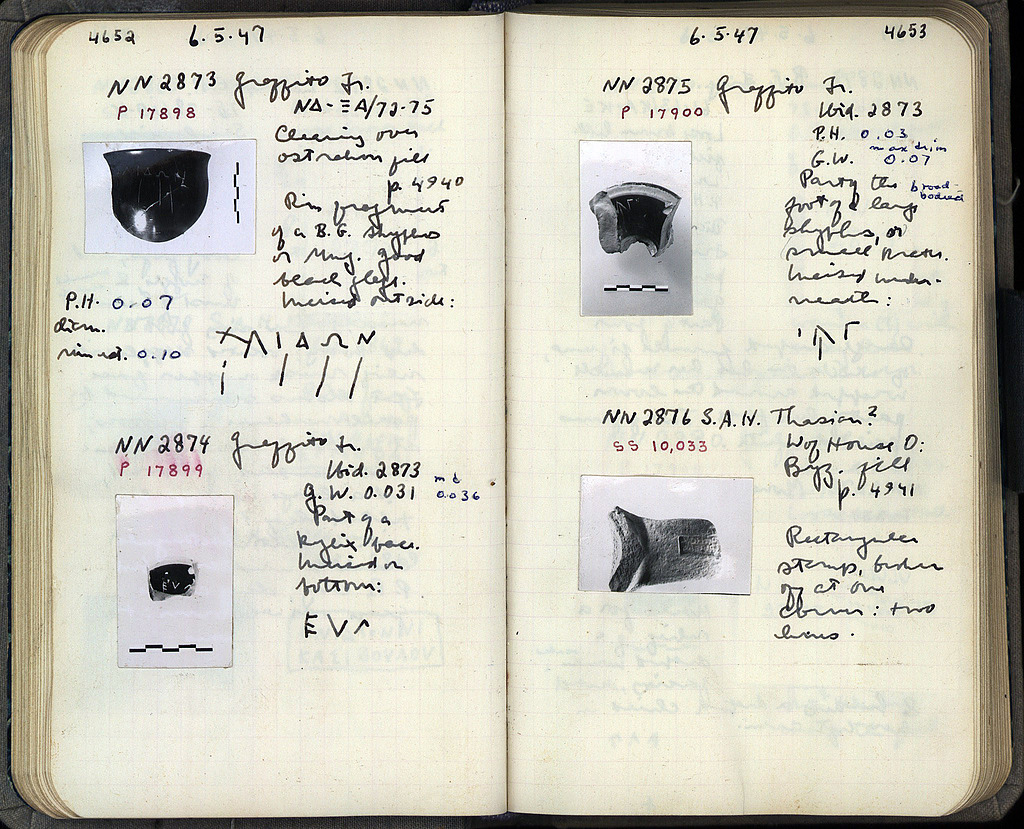 4652
6.5.47
NN 2873 Graffito Fr.
P 17898
ΝΔ-ΞΑ/72-75
Cleaning over
ostrakon fill
p. 4940
Rim fragment
of a B.G. skyphos
or mug. Good
black glaze.
Incised outside:
P.H. 0.07
diam.
rim est. 0.10
NN 2874 Graffito Fr.
P 17899
Ibid. 2873
G.W. 0.031
0.036
Part of a
kylix base.
Incised on
bottom:
ΕVΛ
6.5.47
4653
NN 2875 Graffito Fr.
P 17900
Ibid. 2873
P.H. 0.03
max dim
G.W. 0.07
Part of the broad-
bodied
foot of a large
skyphos, or
small krater.
Incised under-
neath:
NN 2876 S.A.H. Thasian?
SS 10,033
W of House O:
Byz. fill
p. 4941
Rectangular
stamp, broken
off at one
corner: two
lines.